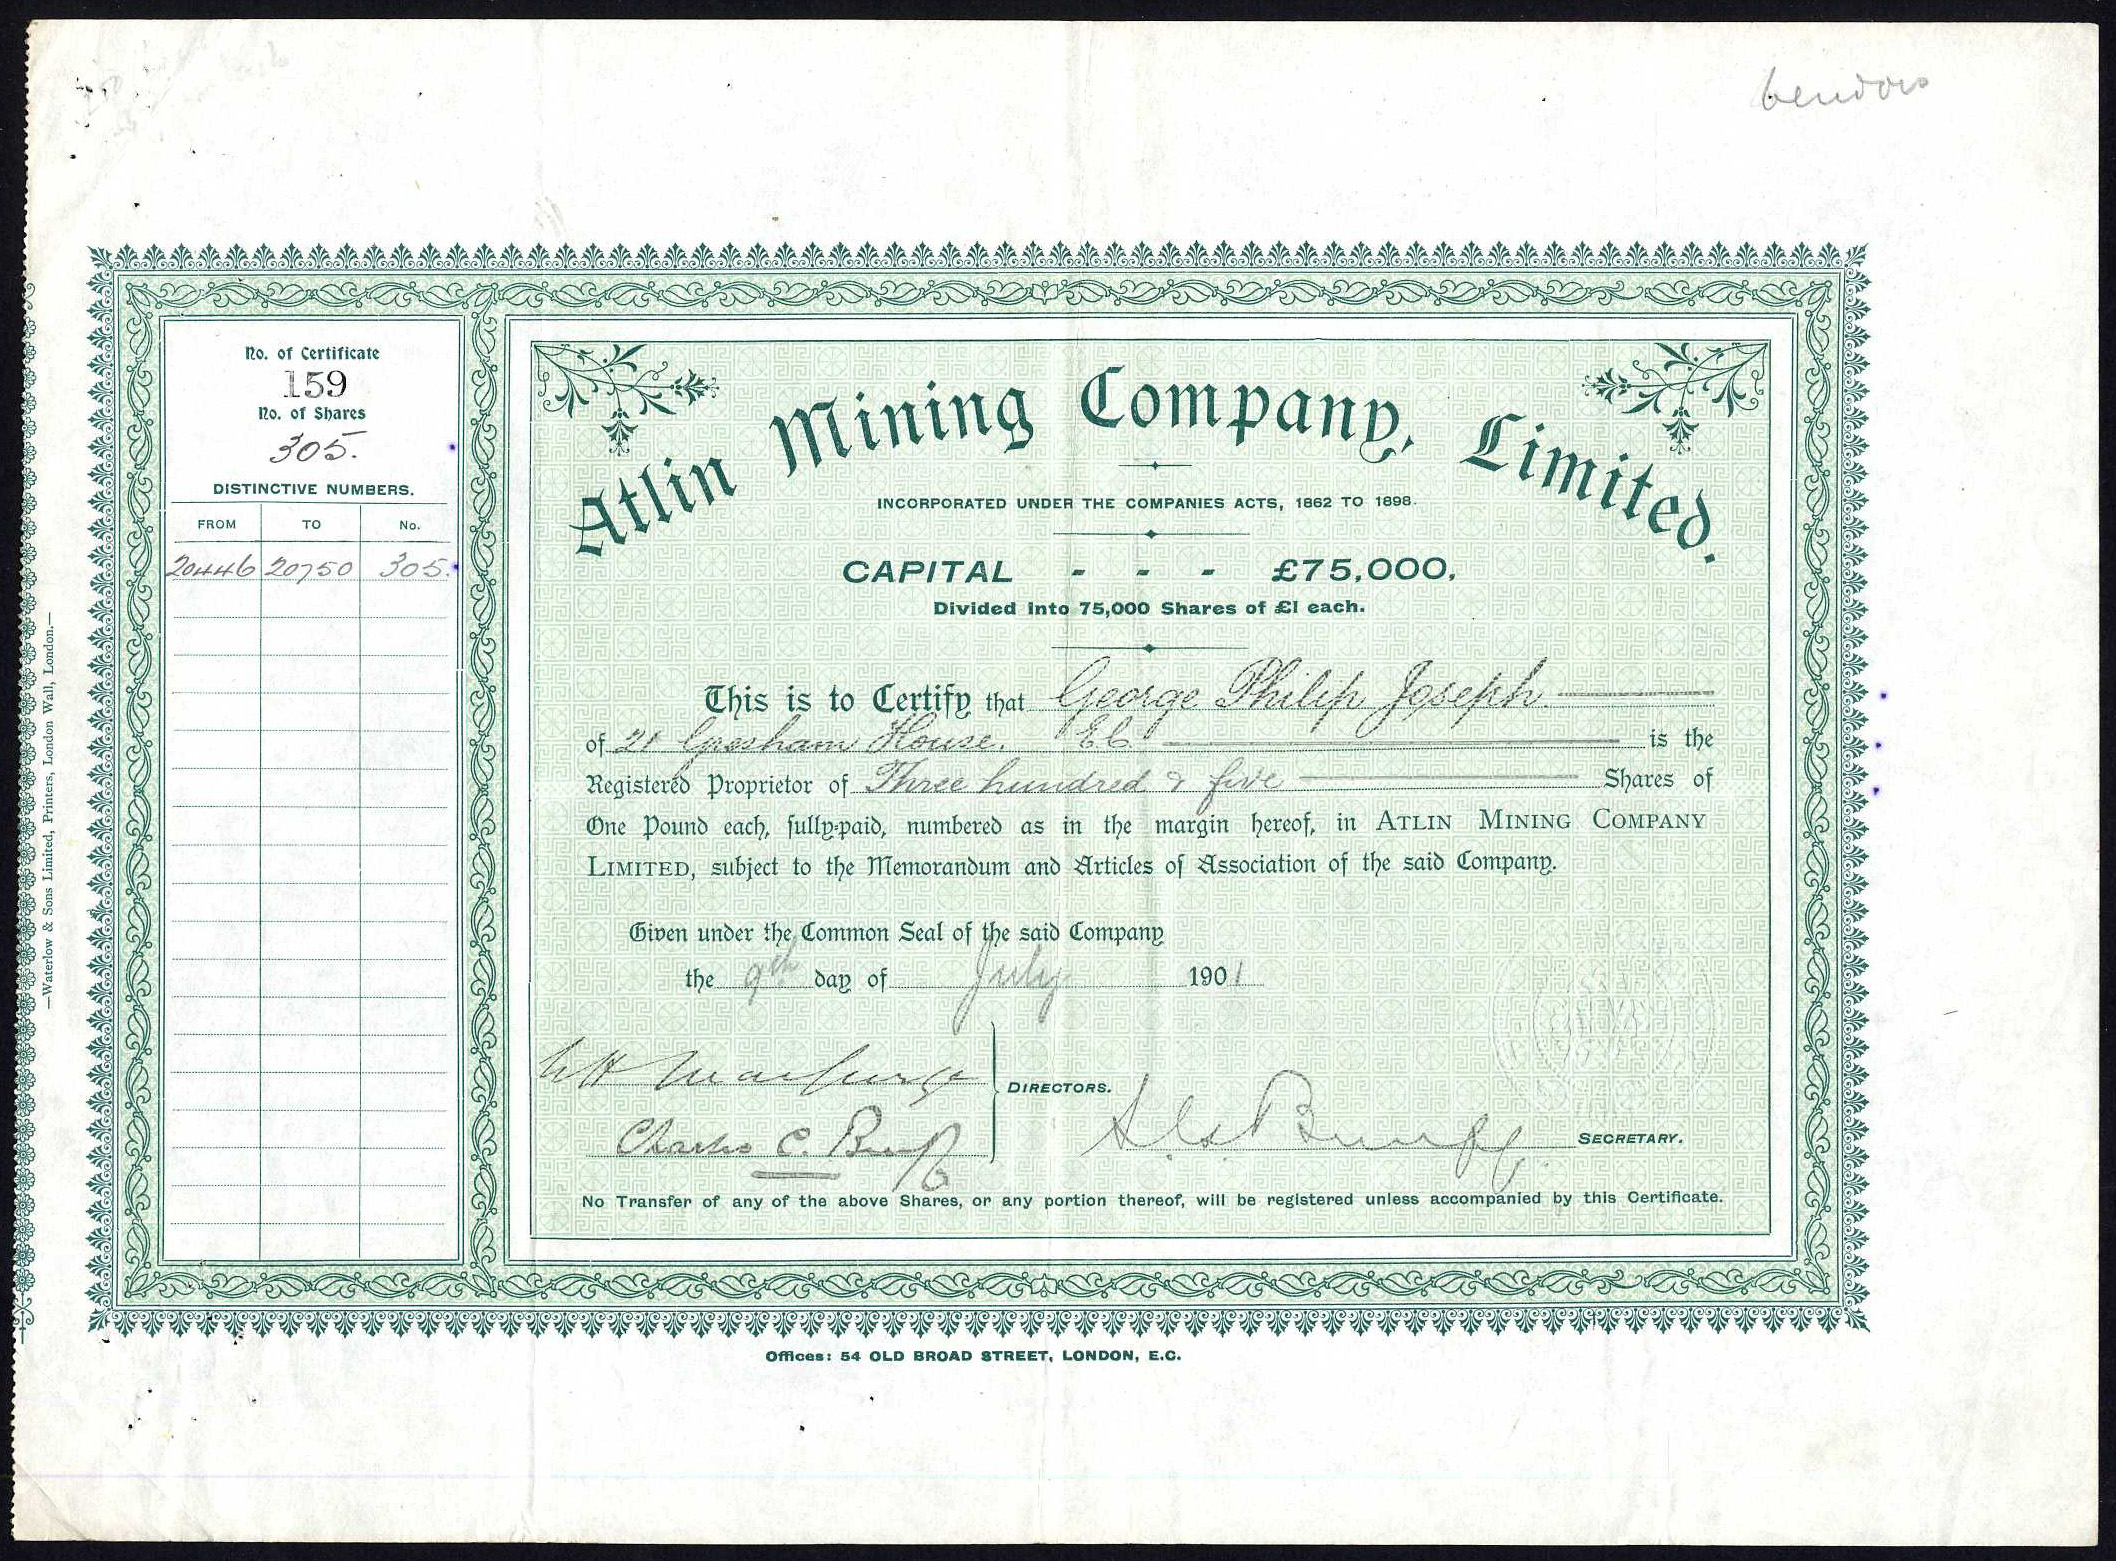 vendors
No. of Certificate
159
No. of Shares
305.
DISTINCTIVE NUMBERS.
FROM TO No.
20446 20750 305.
—Waterlow & Sons Limited, Printers, London Wall, London.—
Atlin Mining Company, Limited.
INCORPORATED UNDER THE COMPANIES ACTS, 1862 TO 1898.
CAPITAL - - - £75,000,
Divided into 75,000 Shares of £1 each.
This is to Certify that George Philip Joseph
of 21 Gresham House. E.C. is the
Registered Proprietor of Three hundred & five Shares of
One Pound each, fully-paid, numbered as in the margin hereof, in ATLIN MINING COMPANY
LIMITED, subject to the Memorandum and Articles of Association of the said Company.
Given under the Common Seal of the said Company
the 9th day of July 1901
DIRECTORS.
Charles C.
SECRETARY.
No Transfer of any of the above Shares, or any portion thereof, will be registered unless accompanied by this Certificate.
Offices: 54 OLD BROAD STREET, LONDON, E.C.